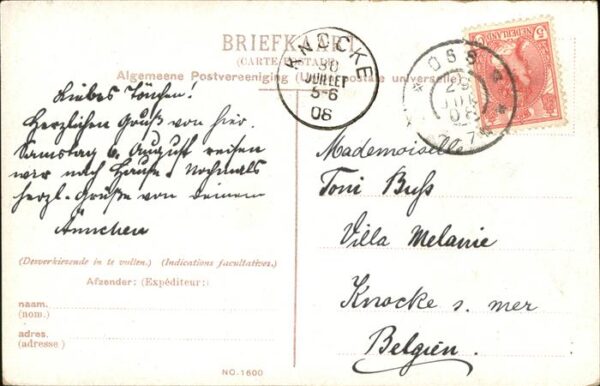 BRIEFKAART
(CARTE POSTALE)
Algemeene Postvereeniging (Union postale universelle)
KNOCKE
30
JUILLET
5-6
06
OSS
29
JUL
06
7-7N
5 NEDERLAND 5
Liebes Tönchen!
Herzlichen Gruß von hier.
Samstag 4. August reisen
wir nach Hause. Nochmals
herzl. Grüße von deinem
Ännchen
Mademoiselle
Toni Buss
Villa Melanie
Knocke s. mer
Belgien.
(Desverkiezende in te vullen.) (Indications facultatives.)
Afzender: (Expéditeur:)
naam.
(nom.)
adres.
(adresse)
NO. 1600